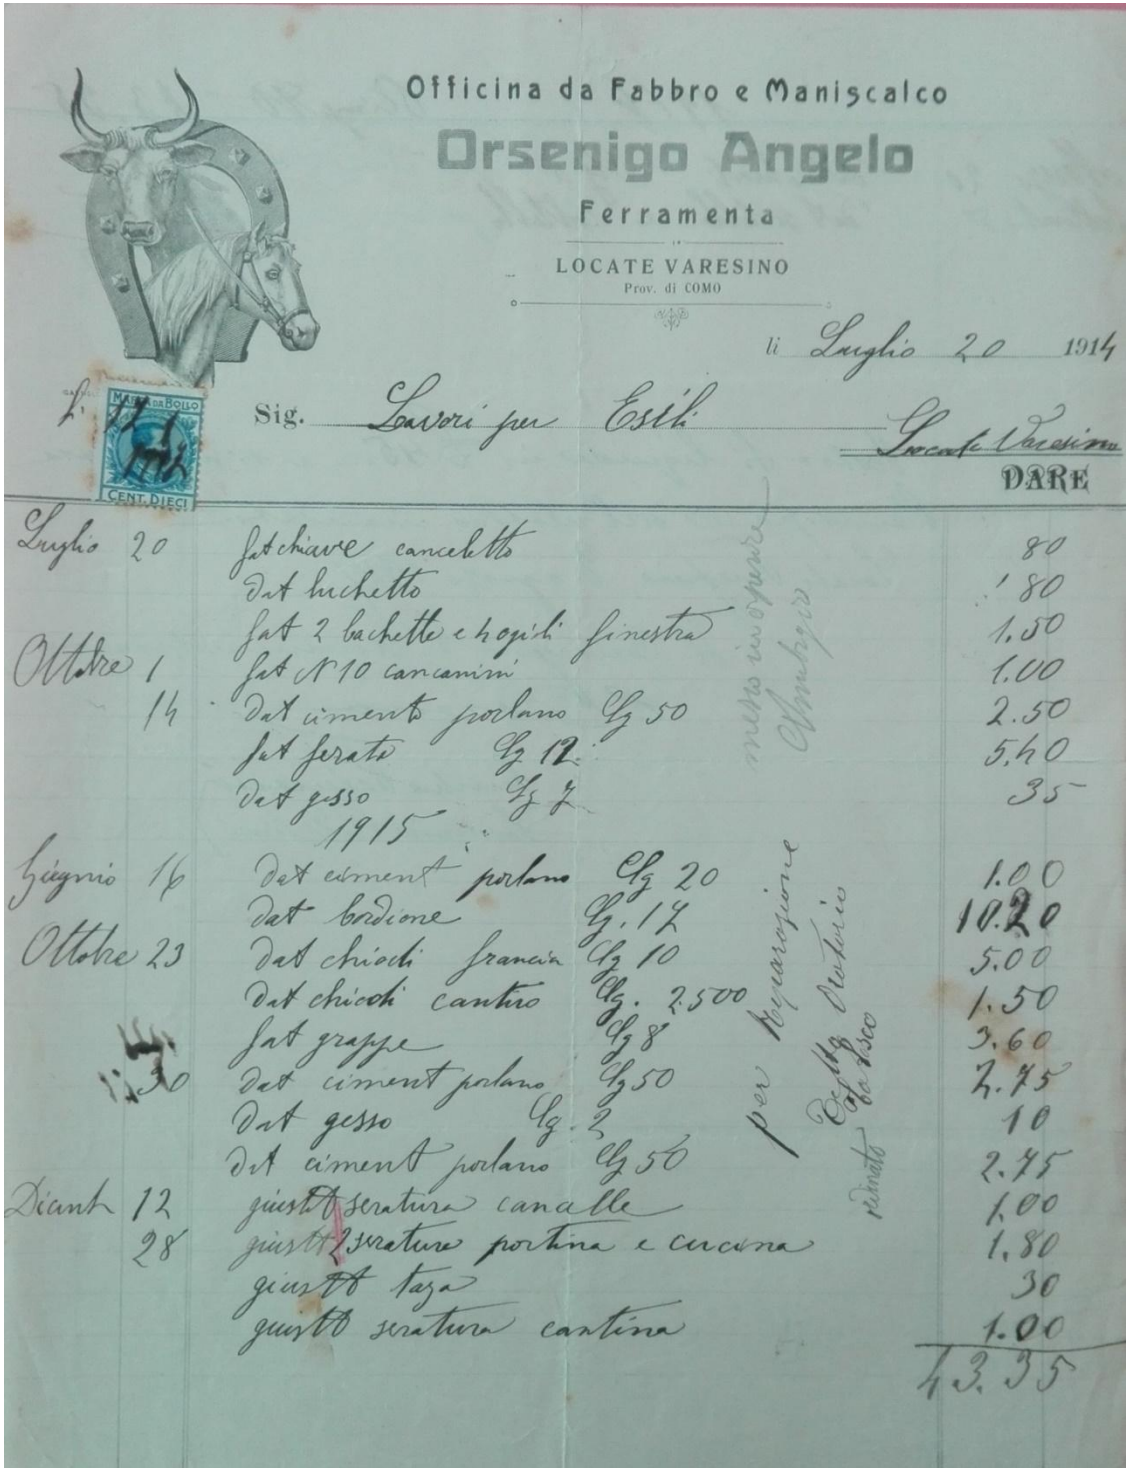 Officina da Fabbro e Maniscalco
Orsenigo Angelo
Ferramenta
LOCATE VARESINO
Prov. di COMO
li Luglio 20 1914
Sig. Lavori per Esili
Locate Varesino
MARCA DA BOLLO
CENT. DIECI
DARE
Luglio 20 fat chiave canceletto 80
dat luchetto 80
fat 2 bachette e 4 ogili finestra 1.50
Ottobre 1 fat N 10 cancanini 1.00
14 dat cimento porlano Cg 50 2.50
fat ferata Cg 12 5.40
dat gesso Cg 7 35
1915
Giugnio 16 dat ciment porlano Cg 20 1.00
dat bordione Cg. 17 10.20
Ottobre 23 dat chiodi francia Cg 10 5.00
dat chiodi cantiro Cg. 2.500 1.50
fat grappe Cg 8 3.60
30 dat ciment porlano Cg 50 2.75
dat gesso Cg. 2 10
dat ciment porlano Cg 50 2.75
12 giustt seratura cancelle 1.00
28 giustt 2 serature portina e cucina 1.80
giustt taza 30
giustt seratura cantina 1.00
43.35
messo in opera
Ambrogio
per Reparazione
Della Oratorio